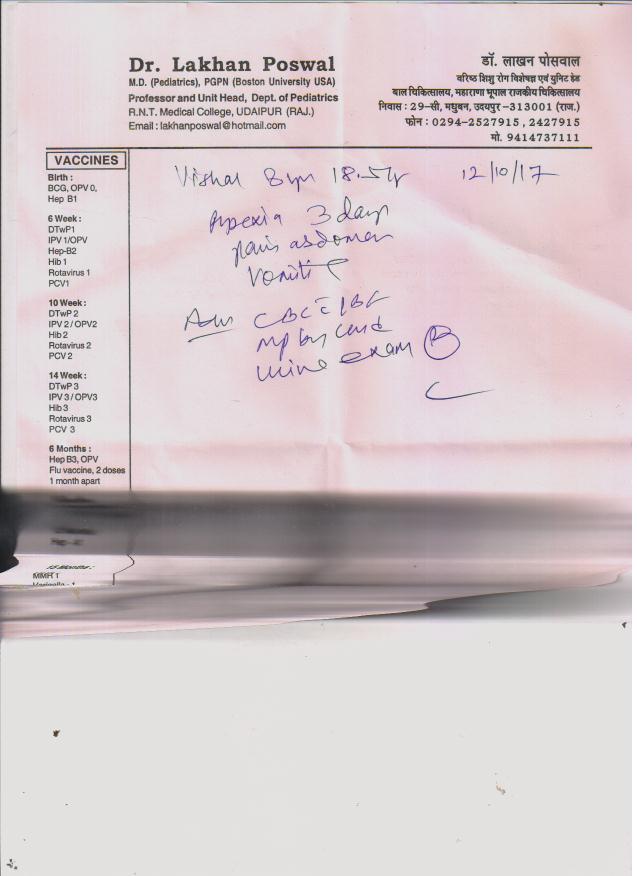 Dr. Lakhan Poswal
M.D. (Pediatrics), PGPN (Boston University USA)
Professor and Unit Head, Dept. of Pediatrics
R.N.T. Medical College, UDAIPUR (RAJ.)
Email : lakhanposwal@hotmail.com
डॉ. लाखन पोसवाल
वरिष्ठ शिशु रोग विशेषज्ञ एवं युनिट हेड
बाल चिकित्सालय, महाराणा भूपाल राजकीय चिकित्सालय
निवास : 29-सी, मधुबन, उदयपुर -313001 (राज.)
फोन : 0294-2527915 , 2427915
मो. 9414737111
VACCINES
Birth :
BCG, OPV 0,
Hep B1
6 Week :
DTwP1
IPV 1/OPV
Hep-B2
Hib 1
Rotavirus 1
PCV1
10 Week :
DTwP 2
IPV 2 / OPV2
Hib 2
Rotavirus 2
PCV 2
14 Week :
DTwP 3
IPV 3 / OPV3
Hib 3
Rotavirus 3
PCV 3
6 Months :
Hep B3, OPV
Flu vaccine, 2 doses
1 month apart
MMR 1
Vishal 8yr 12/10/17
3 day
pain abdomen
CBC
mp by card
urine exam